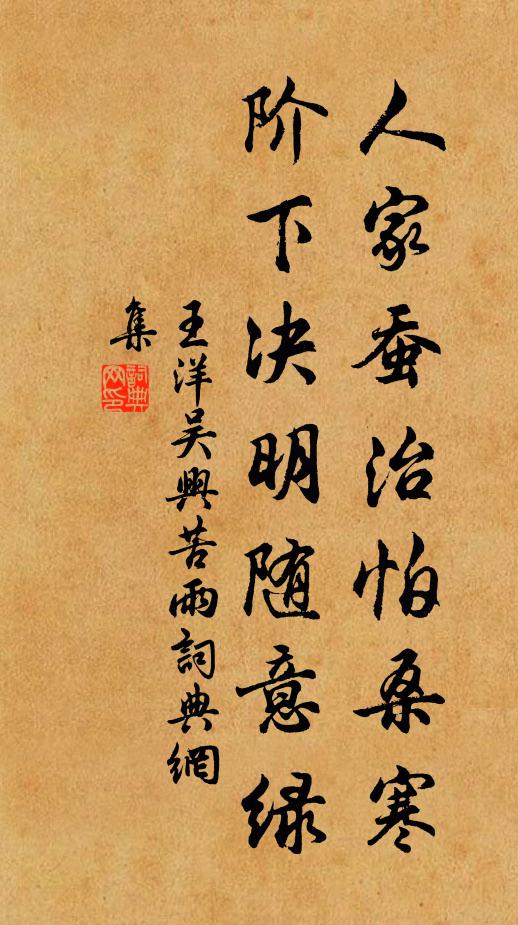 人家蚕治怕桑寒
阶下决明随意绿
王洋吴興苦雨詞典網
集
詞典网印